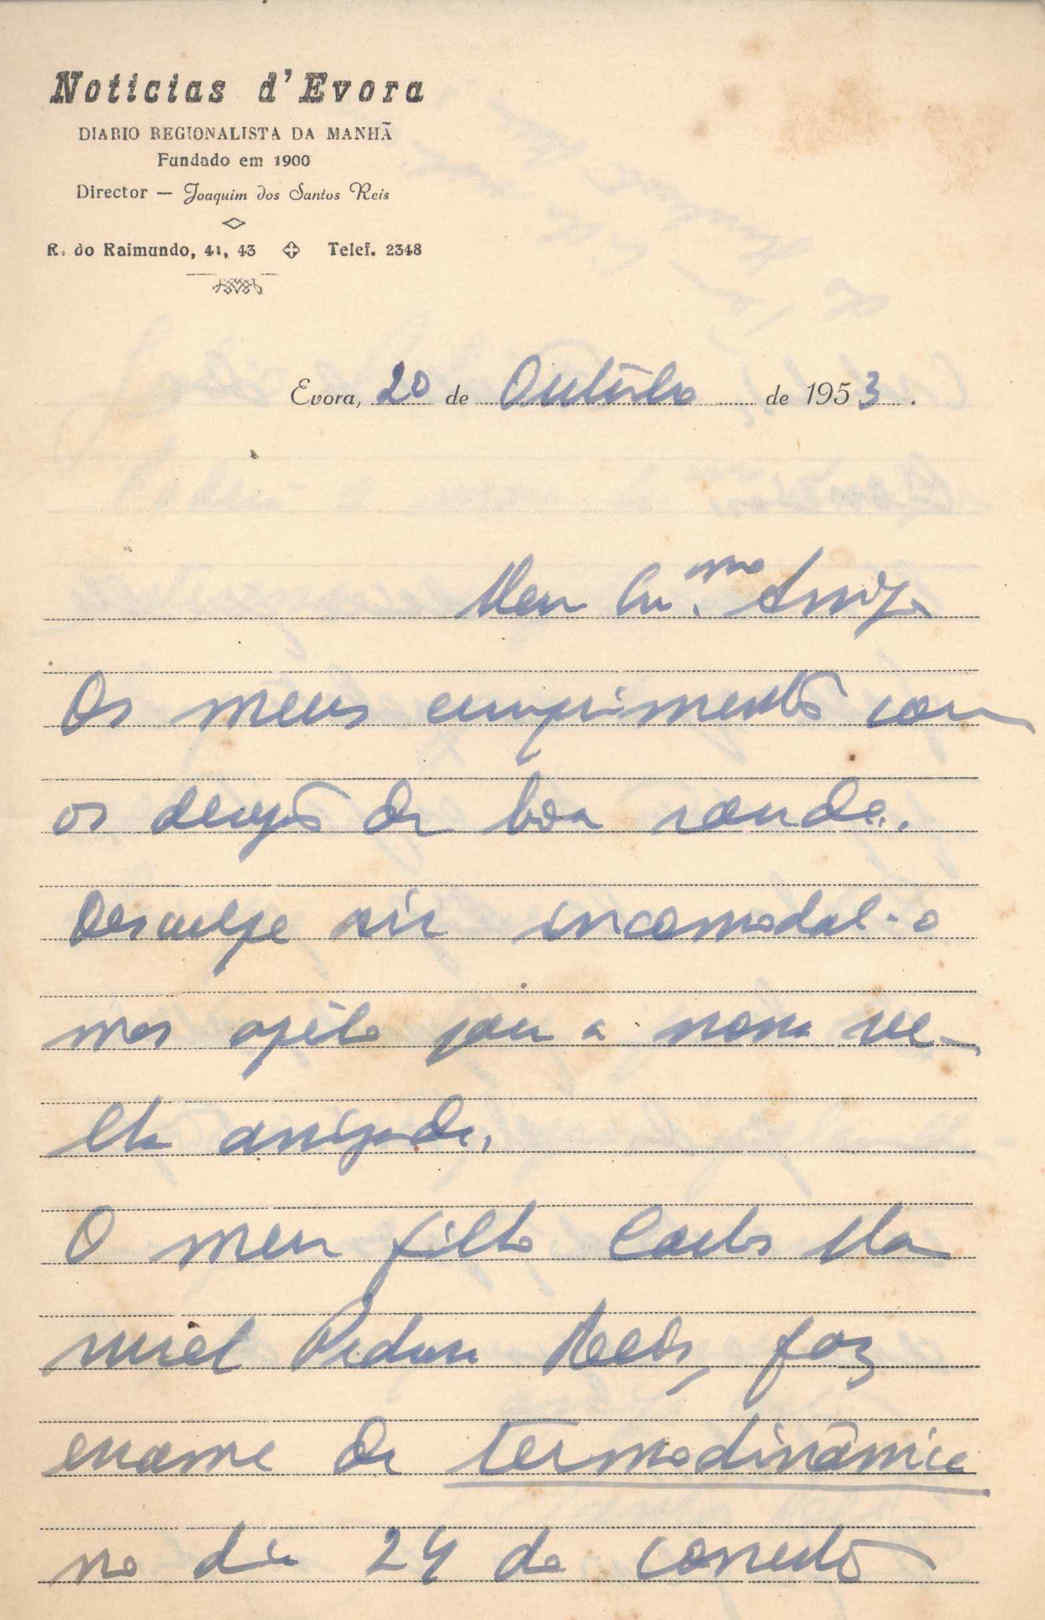 Noticias d'Evora
DIARIO REGIONALISTA DA MANHÃ
Fundado em 1900
Director — Joaquim dos Santos Reis
R. do Raimundo, 41, 43 Telef. 2348
Evora, 20 de Outubro de 1953.
Meu Exmo. Amigo
Os meus cumprimentos com
os desejos de boa saude.
Desculpe vir incomodal-o
mas apélo para a nossa ve-
lha amizade.
O meu filho Carlos Ma
nuel Reis, faz
exame de termodinâmica
no dia 24 do corrente